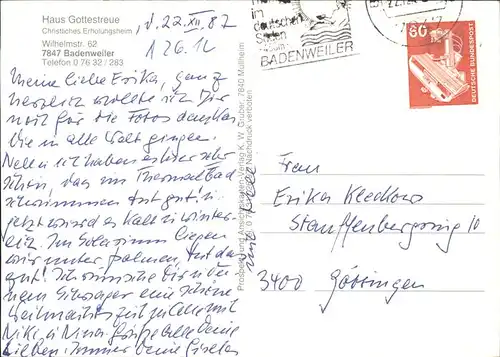 Haus Gottestreue
Christliches Erholungsheim
Wilhelmstr. 62
7847 Badenweiler
Telefon 0 76 32 / 283
d. 22. XII. 87
126.14
Meine liebe Erika, ganz
herzlich wollte ich Dir
noch für die Fotos danken
die in alle Welt gingen.
Nelli u. ich haben es hier sehr
schön, das im Thermal Bad
schwimmen tut gut! u.
jetzt wird es kalt u. winter-
lich. Im Solarium liegen
wir unter Palmen, tut das
gut! Ich wünsche Dir u. Dei-
nem Schwager eine schöne
Weihnachtszeit
Niki, u. Nina. Grüße alle Deine
Lieben. Immer Deine Giselas
und Nelli
Prospekt- und Ansichtskarten-Verlag K. W. Gruber, 7840 Müllheim
Nachdruck verboten
in
deutschen
Süden
BADENWEILER
80
DEUTSCHE BUNDESPOST
Frau
Erika Kleckow
Stauffenbergring 10
3400 Göttingen